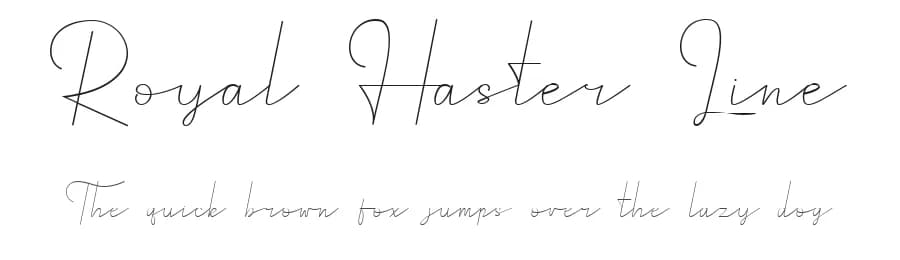 Royal Haster Line
The quick brown fox jumps over the lazy dog